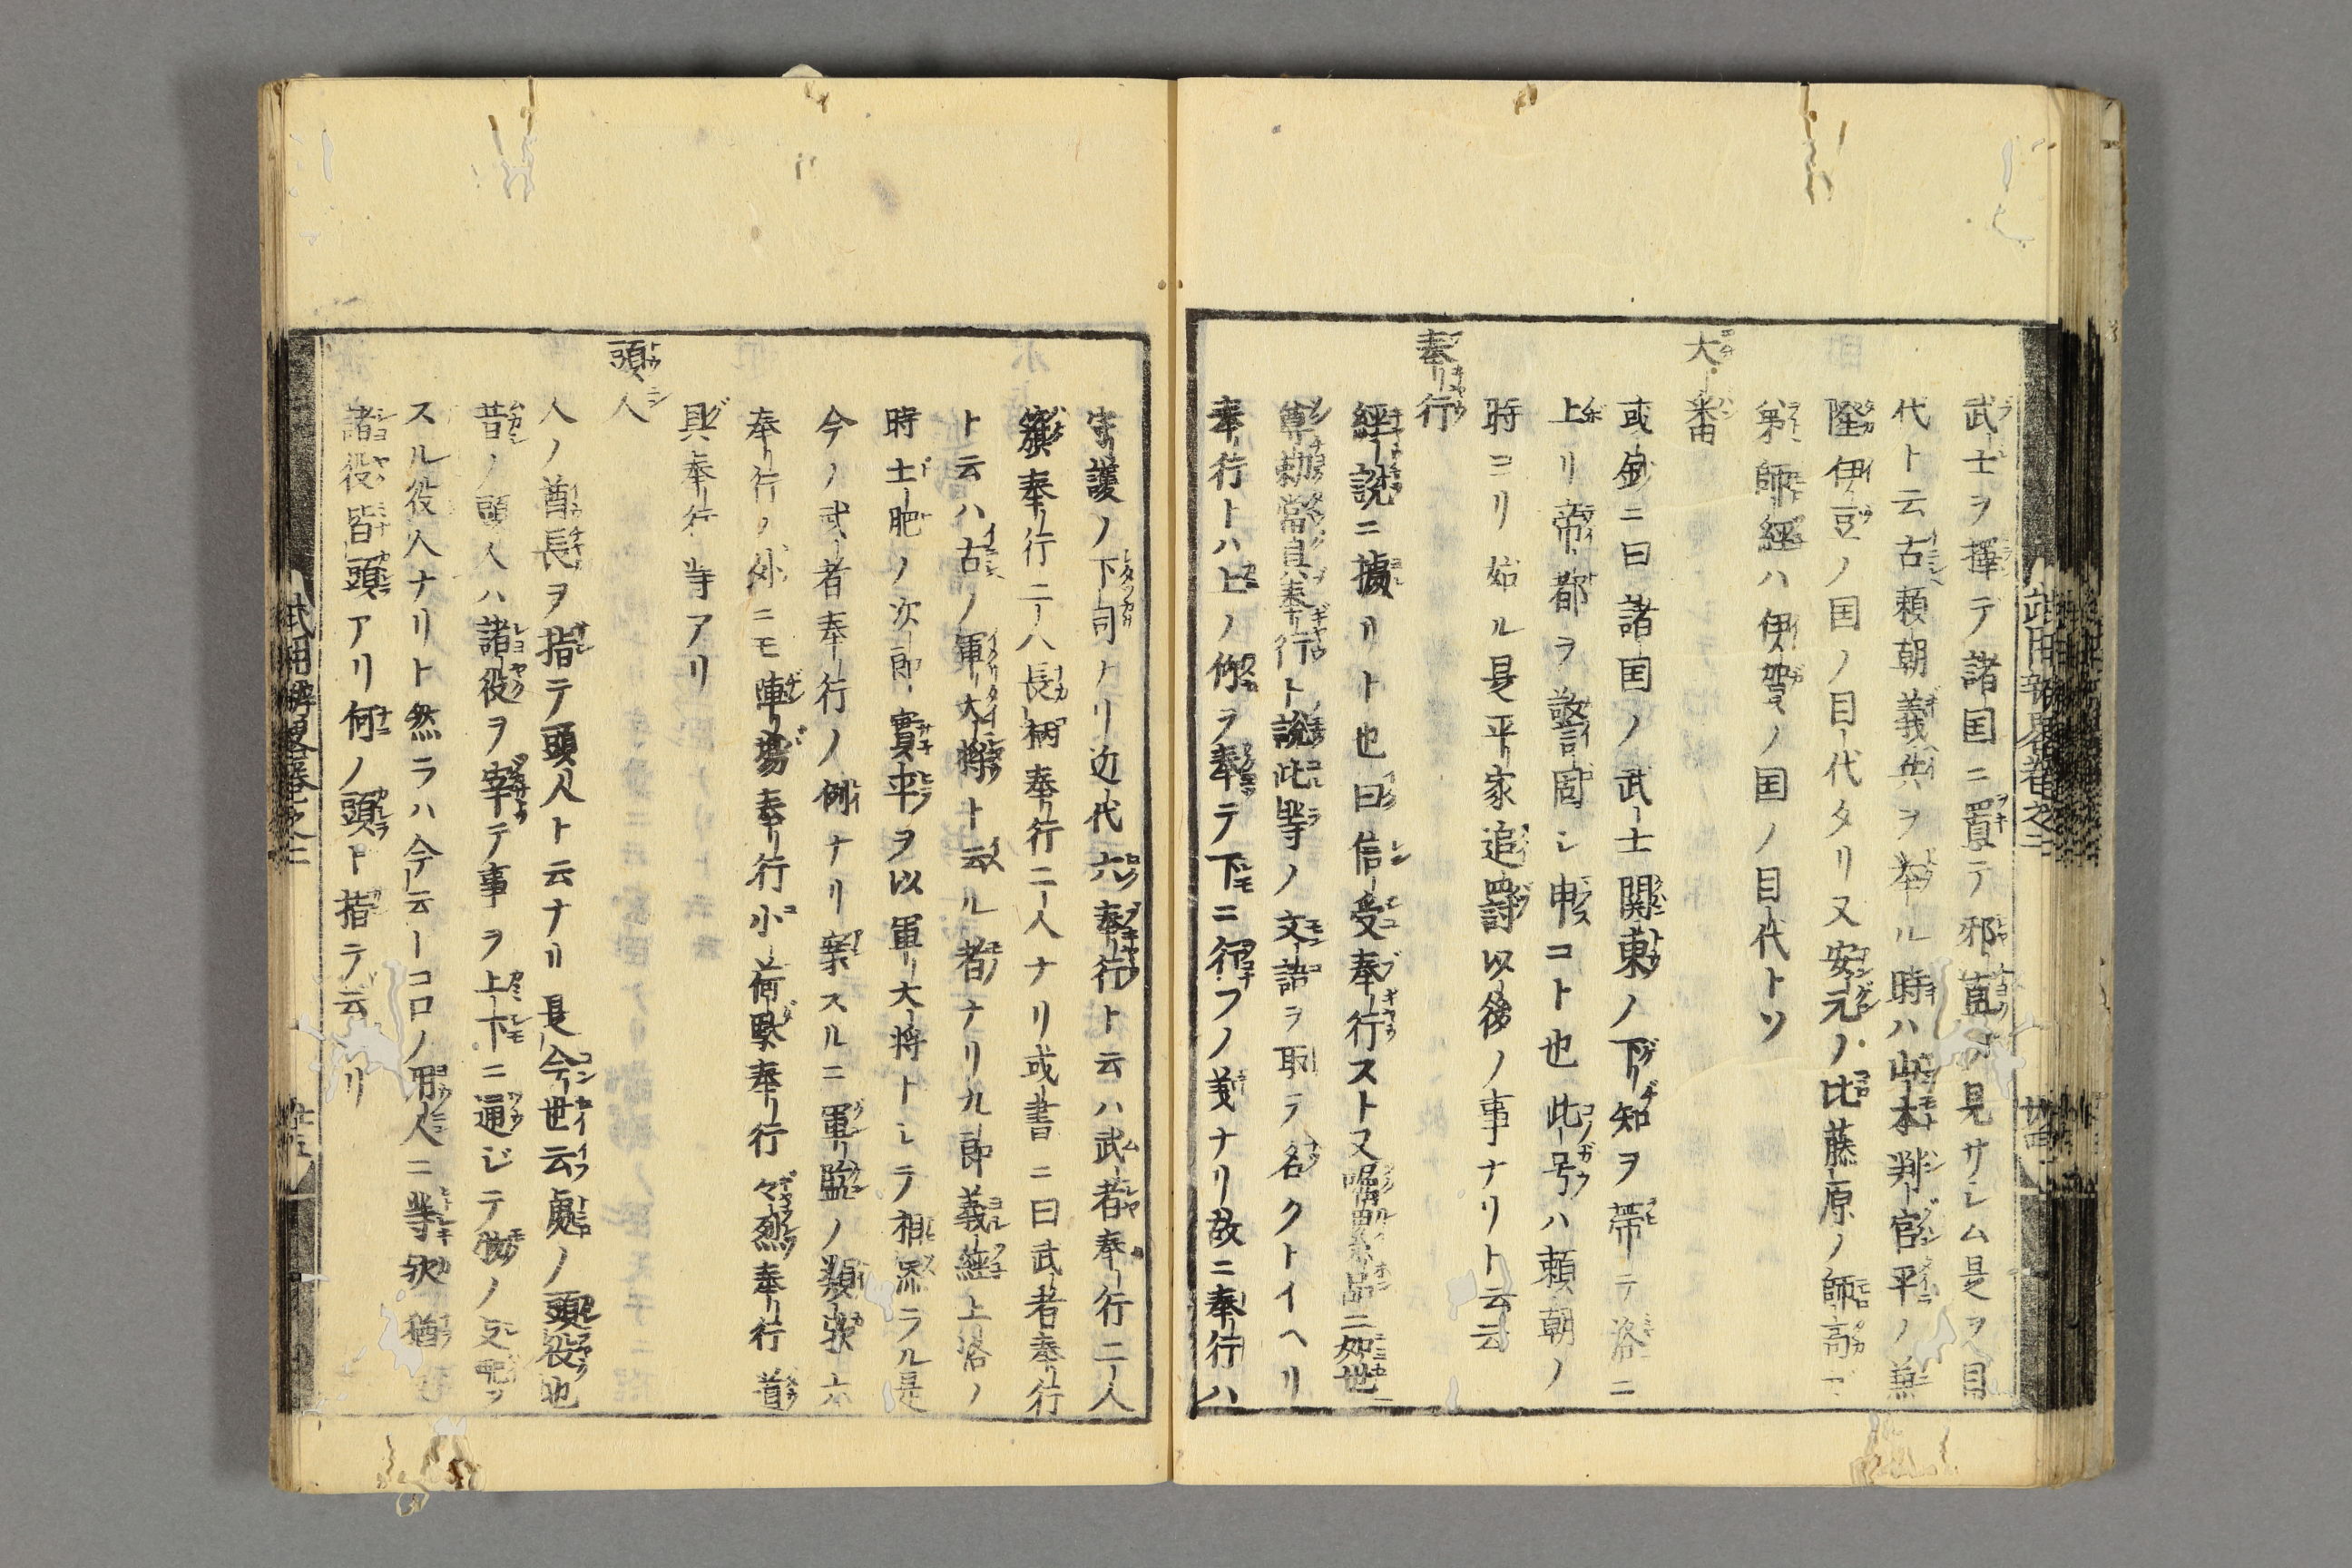 武士ヲ擇テ諸国ニ置テ邪正ヲ見サシム是ヲ目
代ト云古頼朝義兵ヲ挙ル時ハ山木判官平ノ兼
隆伊豆ノ国ノ目代タリ又安元ノ比藤原ノ師高ガ
弟師經ハ伊賀ノ国ノ目代トソ
大番
或鈔ニ曰諸国ノ武士関東ノ下知ヲ帯テ洛ニ
上リ帝都ヲ警固シ申コト也此号ハ頼朝ノ
時ヨリ始ル是平家追罸以後ノ事ナリト云云
奉行
經説ニ據リト也曰信受奉行スト又嘱累品ニ如世
尊勅當具奉行ト説此等ノ文語ヲ取テ名クトイヘリ
奉行トハ上ノ仰ヲ奉テ下ニ行フノ義ナリ故ニ奉行ハ
守護ノ下司ナリ近代六奉行ト云ハ武者奉行二人
籏奉行二人長柄奉行二人ナリ或書ニ曰武者奉行
ト云ハ古ノ軍大将ト云ル者ナリ九郎義經上洛ノ
時土肥ノ次郎實平ヲ以軍大将トシテ相添ラル是
今ノ武者奉行ノ例ナリ案スルニ軍監ノ類欤六
奉行ノ外ニモ陣場奉行小荷駄奉行々烈奉行首
具奉行等アリ
頭人
人ノ酋長ヲ指テ頭人ト云ナリ是今世云處ノ頭役也
昔ノ頭人ハ諸役ヲ宰テ事ヲ上下ニ通ジテ物ノ支配ヲ
スル役人ナリト然ラハ今云コロノ用人ニ等欤猶
諸役皆頭アリ何ノ頭ト指テ云リ
武用辨略巻之二